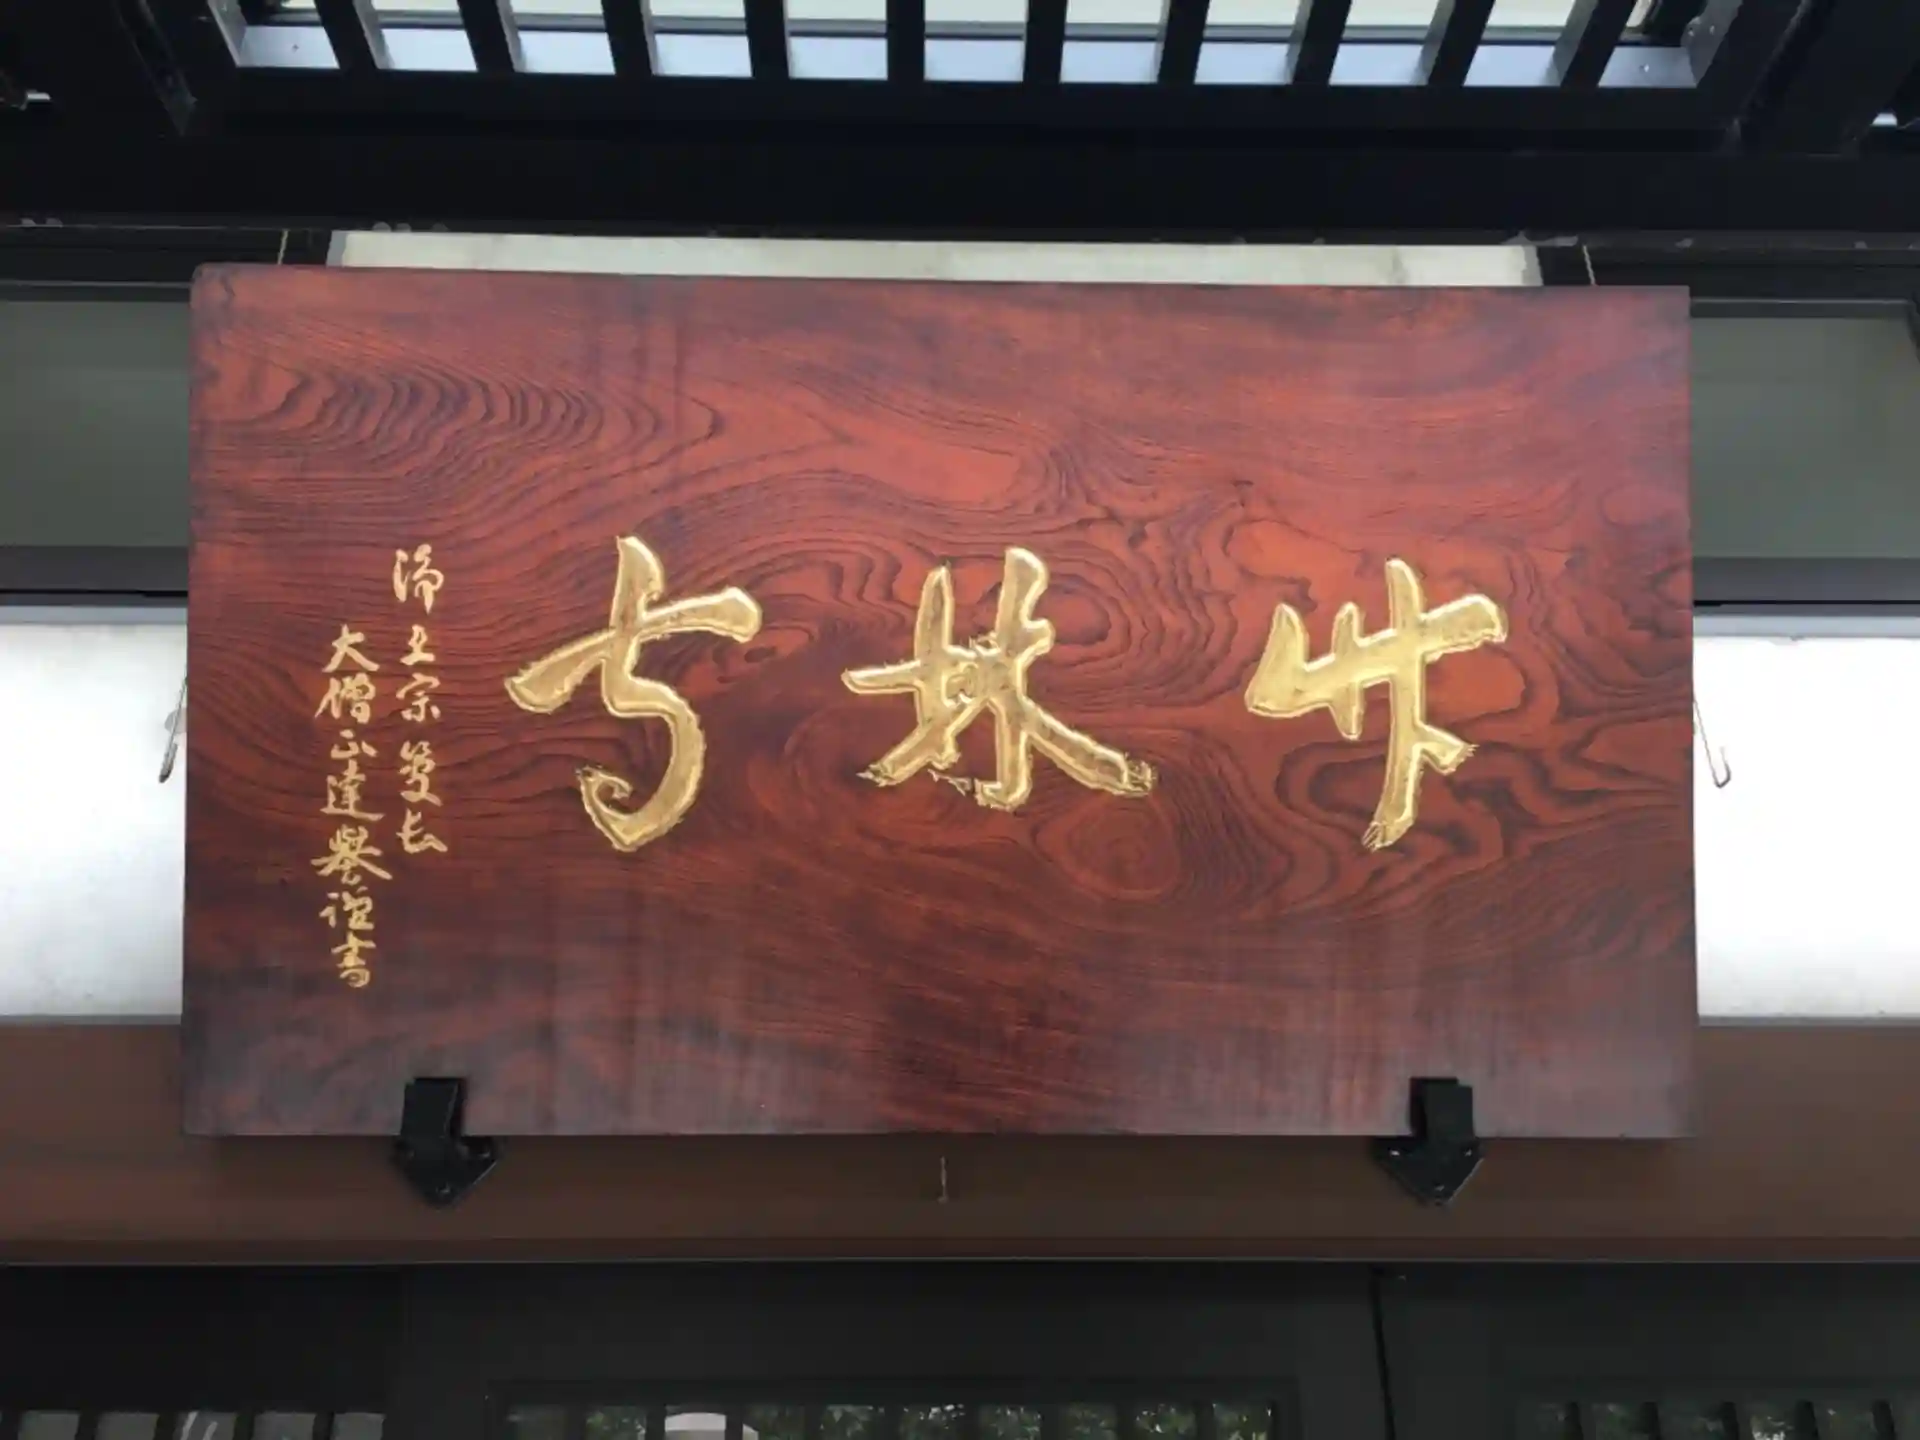 竹林寺
浄土宗管長
大僧正達譽書